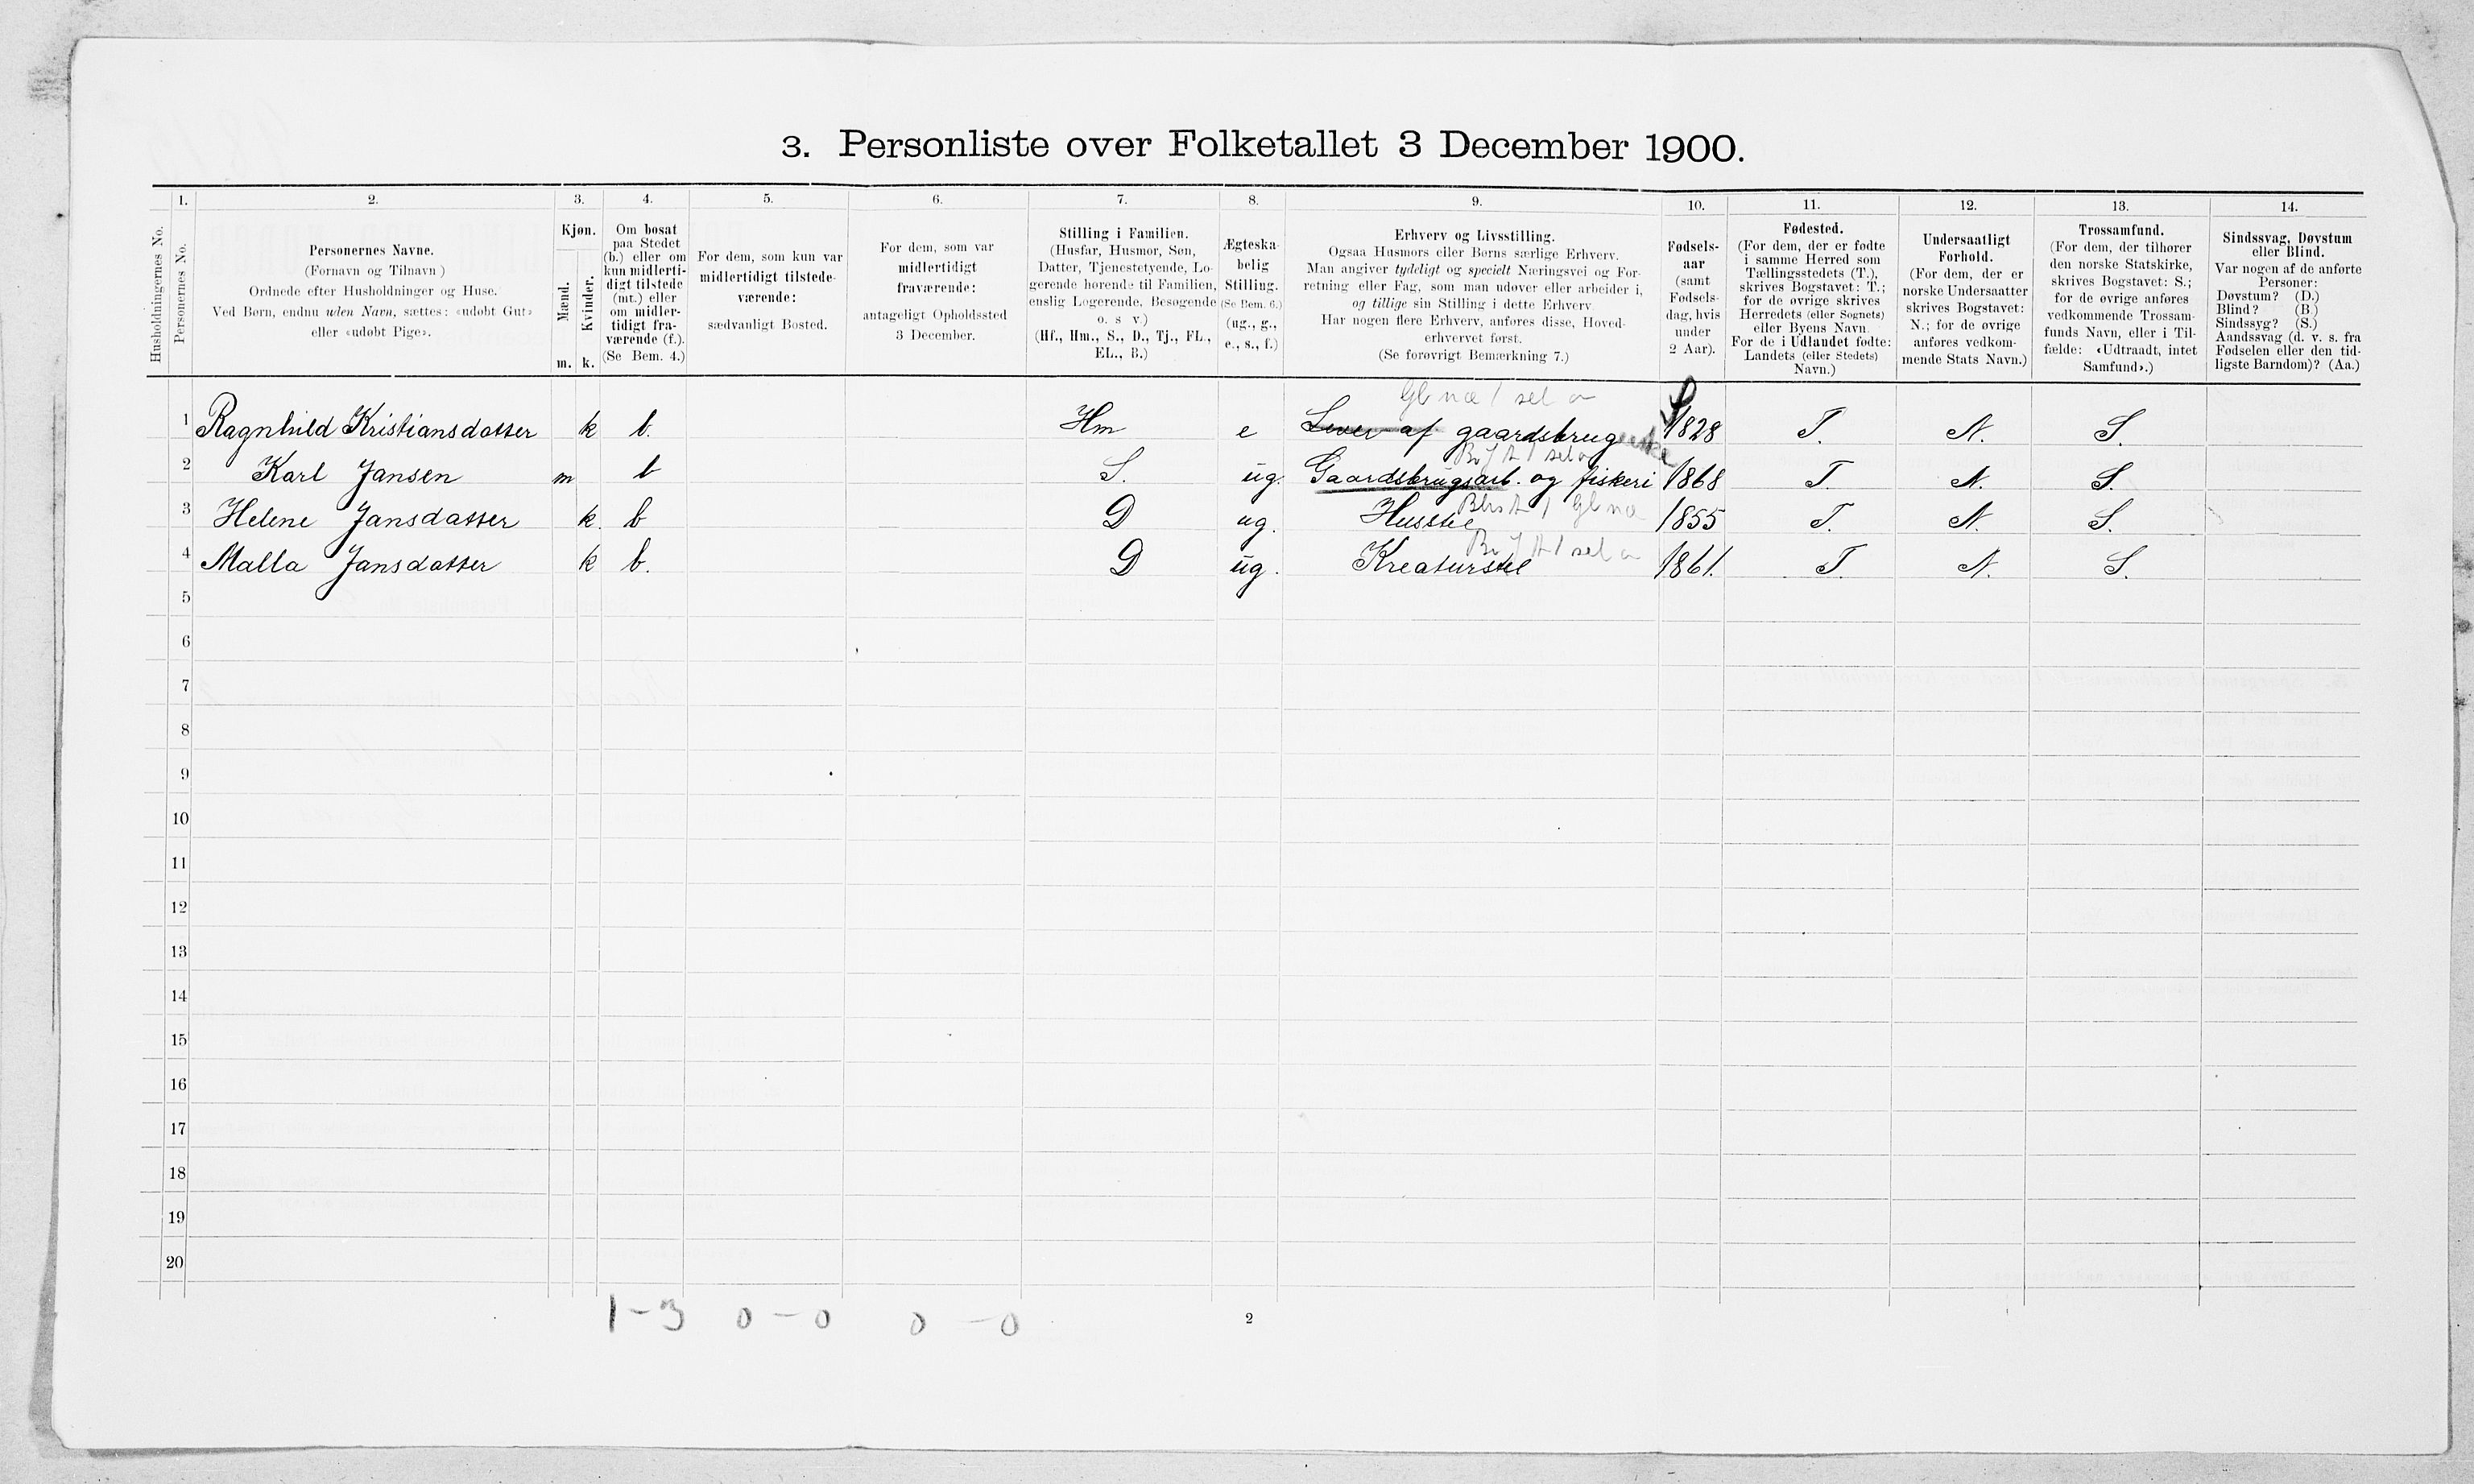 3. Personliste over Folketallet 3 December 1900.
1. 2. 3. 4. 5. 6. 7. 8. 9. 10. 11. 12. 13. 14.
Husholdningernes No.
Personernes No.
Personernes Navne.
(Fornavn og Tilnavn )
Ordnede efter Husholdninger og Huse.
Ved Børn, endnu uden Navn, sættes: «udøbt Gut»
eller «udøbt Pige».
Kjøn.
Mænd.
Kvinder.
m. k.
Om bosat
paa Stedet
(b.) eller om
kun midlerti-
digt tilstede
(mt.) eller
om midler-
tidigt fra-
værende (f.).
(Se Bem. 4.)
For dem, som kun var
midlertidigt tilstede-
værende:
sædvanligt Bosted.
For dem, som var
midlertidigt
fraværende:
antageligt Opholdssted
3 December.
Stilling i Familien.
(Husfar, Husmor, Søn,
Datter, Tjenestetyende, Lo-
gerende hørende til Familien,
enslig Logerende, Besøgende
o. s v.)
(Hf., Hm., S., D., Tj., FL.,
EL., B.)
Ægteska-
belig
Stilling.
(Se Bem. 6.)
(ug., g.,
e., s., f.)
Erhverv og Livsstilling.
Ogsaa Husmors eller Børns særlige Erhverv.
Man angiver tydeligt og specielt Næringsvei og For-
retning eller Fag, som man udøver eller arbeider i,
og tillige sin Stilling i dette Erhverv
Har nogen flere Erhverv, anføres disse, Hoved-
erhvervet først.
(Se forøvrigt Bemærkning 7.)
Fødsels-
aar
(samt
Fødsels-
dag, hvis
under
2 Aar).
Fødested.
(For dem, der er fødte
i samme Herred som
Tællingsstedets (T.),
skrives Bogstavet: T.;
for de øvrige skrives
Herredets (eller Sognets)
eller Byens Navn.
For de i Udlandet fødte:
Landets (eller Stedets)
Navn.)
Undersaatligt
Forhold.
(For dem, der er
norske Undersaatter
skrives Bogstavet:
N.; for de øvrige
anføres vedkom-
mende Stats Navn.)
Trossamfund.
(For dem, der tilhører
den norske Statskirke,
skrives Bogstavet: S.;
for de øvrige anføres
vedkommende Trossam-
funds Navn, eller i Til-
fælde: «Udtraadt, intet
Samfund».)
Sindssvag, Døvstum
eller Blind.
Var nogen af de anførte
Personer:
Døvstum? (D.)
Blind? (B.)
Sindssyg? (S.)
Aandssvag (d. v. s. fra
Fødselen eller den tid-
ligste Barndom)? (Aa.)
1 Ragnhild Kristiansdatter k b. Hm e Lever af gaardsbrug 1828 T. N. S.
2 Karl Jansen m b S. ug. Gaardsbrugsarb. og fiskeri 1868 T. N. S.
3 Helene Jansdatter k. b D ug. Husstel 1855 T. N. S.
4 Malla Jansdatter k b. D ug. Kreaturstel 1861. T. N. S.
5
6
7
8
9
10
11
12
13
14
15
16
17
18
19
20
1-3 0-0 0-0
2